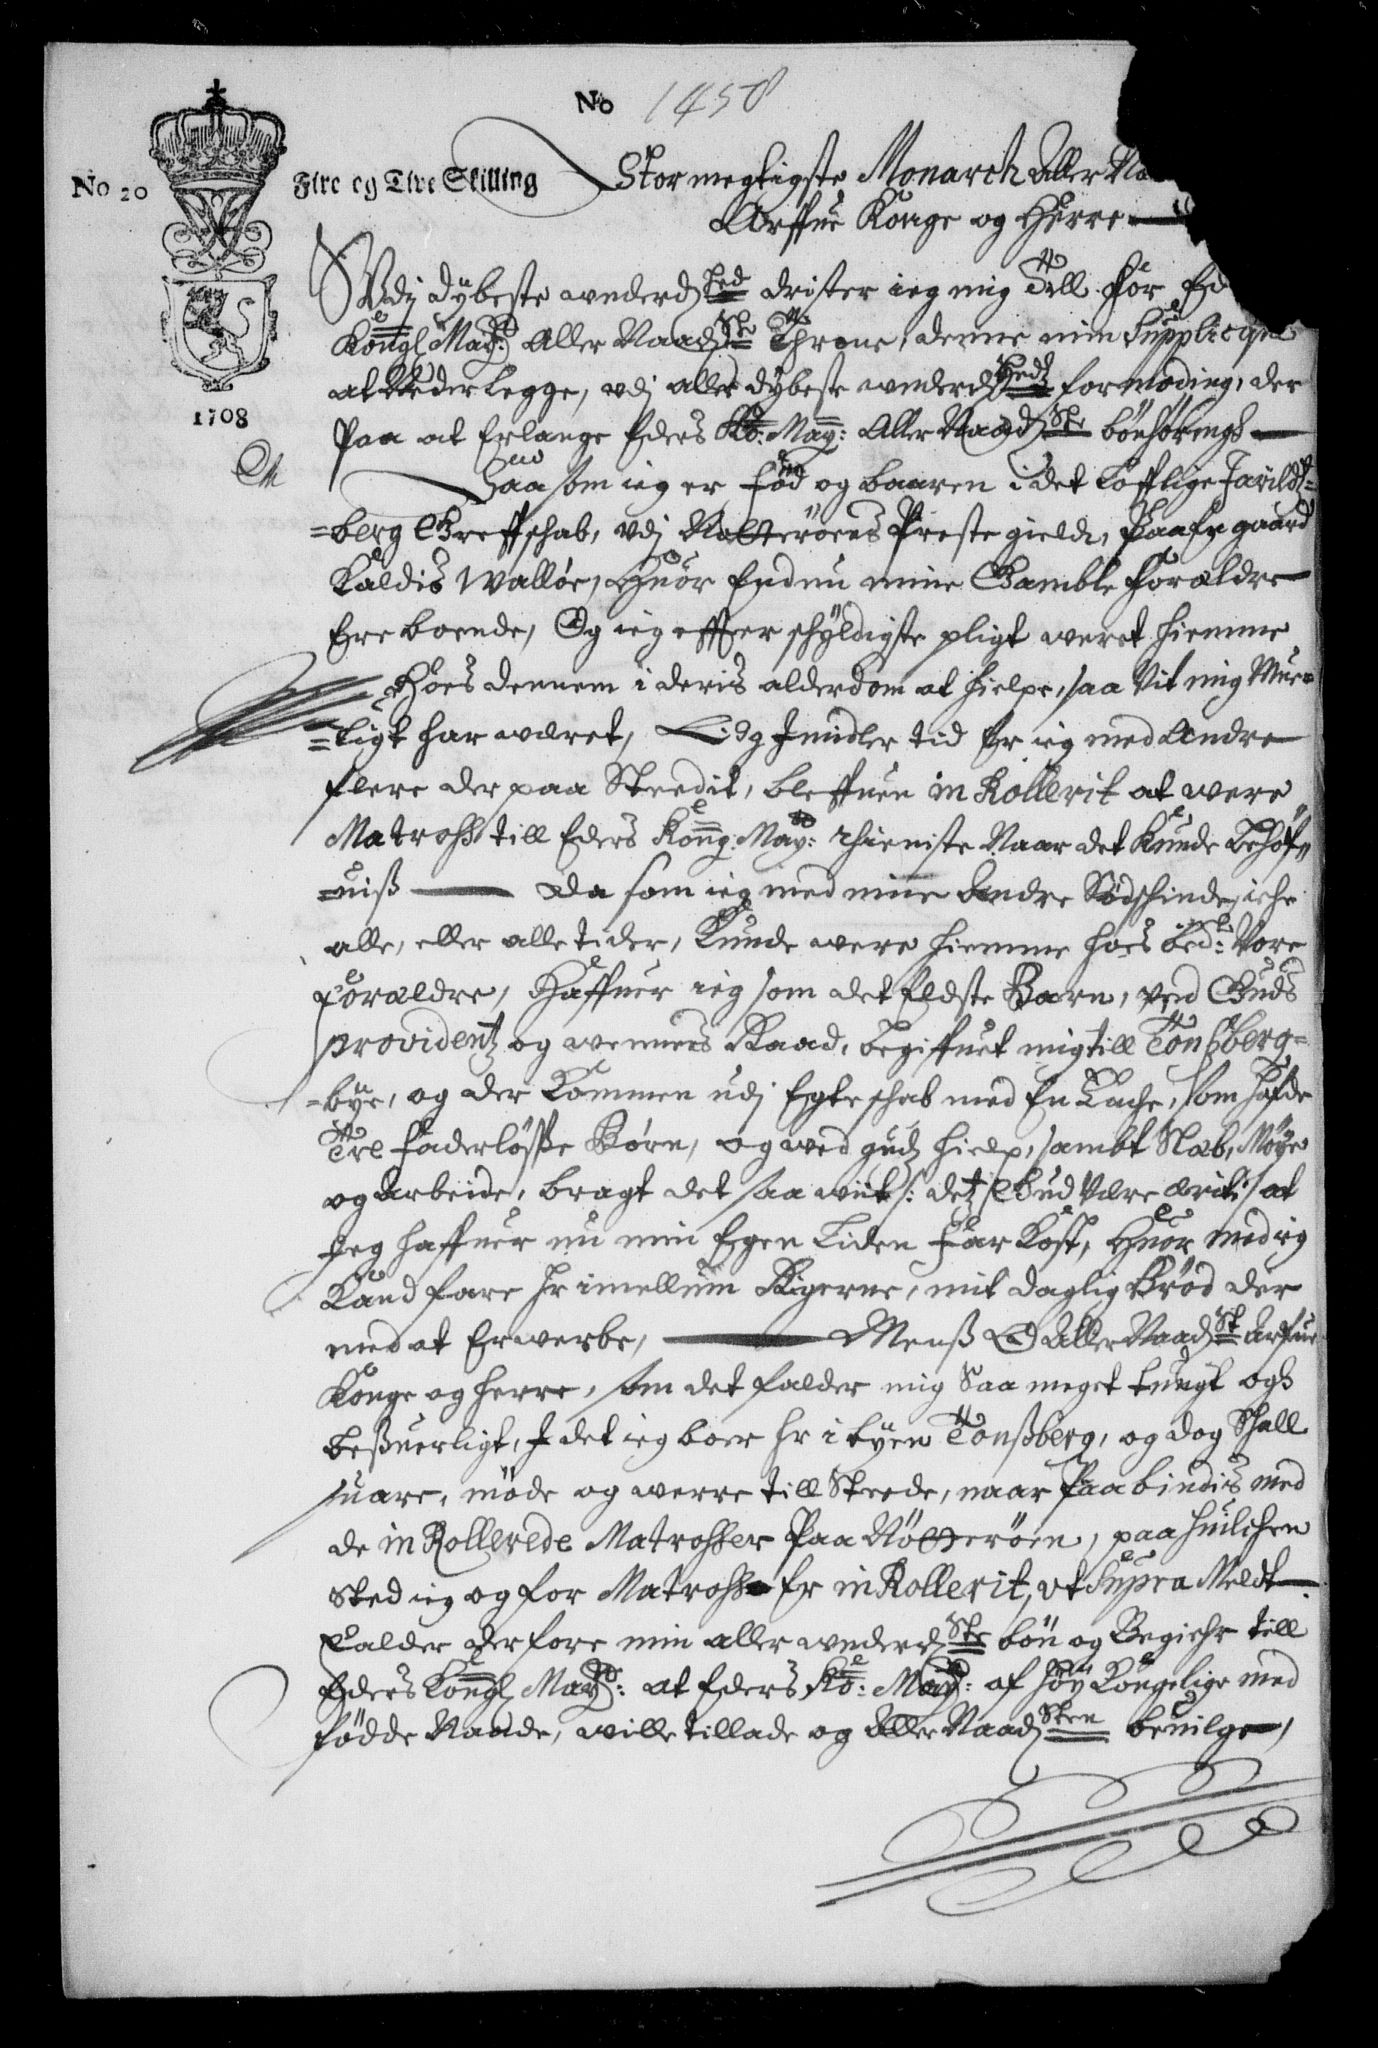 No 1458
No 20 Fire og Tive Skilling Stormegtigste Monarch Aller
Arffue Konge og Herre
Vdj dybeste underd: hed drister ieg mig Till for
Kongl May: Aller Naad: ste Throne, denne min Suppliqve
at Neder legge, vdj aller dybeste underd: hed formoding, der
Paa at Erlange Eders Ko: May: Aller Naad: ste bönhörengh
1708
Saasom ieg er föd og baaren i det Löfflige Jarildt=
=berg Greffschab, vdj Nötteröens Prestegield, Paa En gaard
Kaldis Walløe, Huor End nu mine Gamble Forældre
Ere boende, Og ieg effter schyldigste pligt weret hiemme
Hoes dennem i deris alderdom at hielpe, saa vit mig Mue=
=ligt har wæret, Og Jmidler tid Er ieg med Andre
flere der paa Steedit, bleffuen inRollerit at were
Matrohs till Eders Kong: May: Thieniste Naar det Kunde behöf=
=uiß Da som ieg med mine Andre Södschinde, iche
alle, eller alle tider, Kunde were hiemme hoes bed:te Vore
Forældre, Haffuer ieg som det Eldste Barn, ved Guds
providentz og wenners Raad, begiffuet mig till Tonsberg=
=bye, og der Kommen udj Egteschab med En Enche, som hafde
Tre faderlösse Börn, og wed gudz hielp, sambt Slæb, Möye
og Arbeide, bragt det saa wiit /: detz Gud være ærit :/ at
Jeg haffuer nu min Egen Liden Far Kost, Huor med ieg
Kand fare Hr imellum Rigerne, mit daglig Bröd der
med at Erwerbe, Menß O Aller Naad: ste Arfue
Konge og Herre, som det falder mig Saa meget tungt ogh
beßuerligt, J det ieg boer Hr i byen Tonßberg, og dog Schall
suare, möde og werre till Steede, naar Paabindis med
de inRollerede Matrohser Paa Nötteröen, paa huilchen
Sted ieg og for Matrohs Er inRollerit, vt Supra Meldt
Falder derfore min aller underd: ste bön og Begiehr till
Eders Kongl May: at Eders Ko: May: af höy Kongelige med
födde Naade, wille tillade og Aller Naad: sten beuilge,